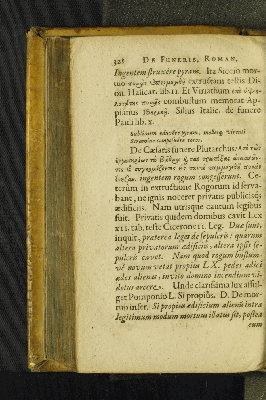 328 DE FUNERIB. ROMAN.
Ingentem struxere pyram. Ita Siccio mor-
tuo extructam testis Di-
on. Halicar. lib. 11. Et Viriathum
combustum memorat Ap-
pianus Silius Italic. de funere
Paulli lib. x.
Sublimem eduxere pyram, mollesq. virenti
Stramine composuere toros.
De Cæsaris funere Plutarchus:
ingentem rogum congesserunt. Ce-
terùm in exstructione Rogorum id serva-
bant, ne ignis noceret privatis publicisq;
ædificiis. Nam utrisque cautum legibus
fuit. Privatis quidem domibus cavit Lex
XII. tab. teste Cicerone II. Leg. Duæ sunt,
inquit, præterea leges de sepulcris: quarum
altera privatorum ædificiis, altera ipsis se-
pulcris cavet. Nam quod rogum bustum-
vè novum vetat propius LX. pedes adici
ædes alienas, invito domino incendium vi-
detur arcere. Unde clarissima lux afful-
get Pomponio L. Si propiùs. D. De mor-
tuo infer. Si propius ædificium alienū intra
legitimum modum mortuus illatus sit, postea
eum